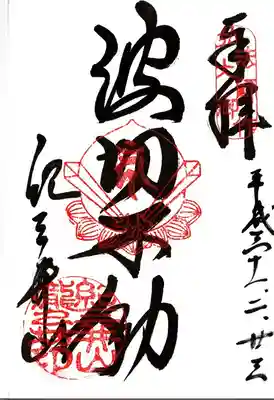 奉拝
平成三十一、二、廿三
波切不動
紀三井寺